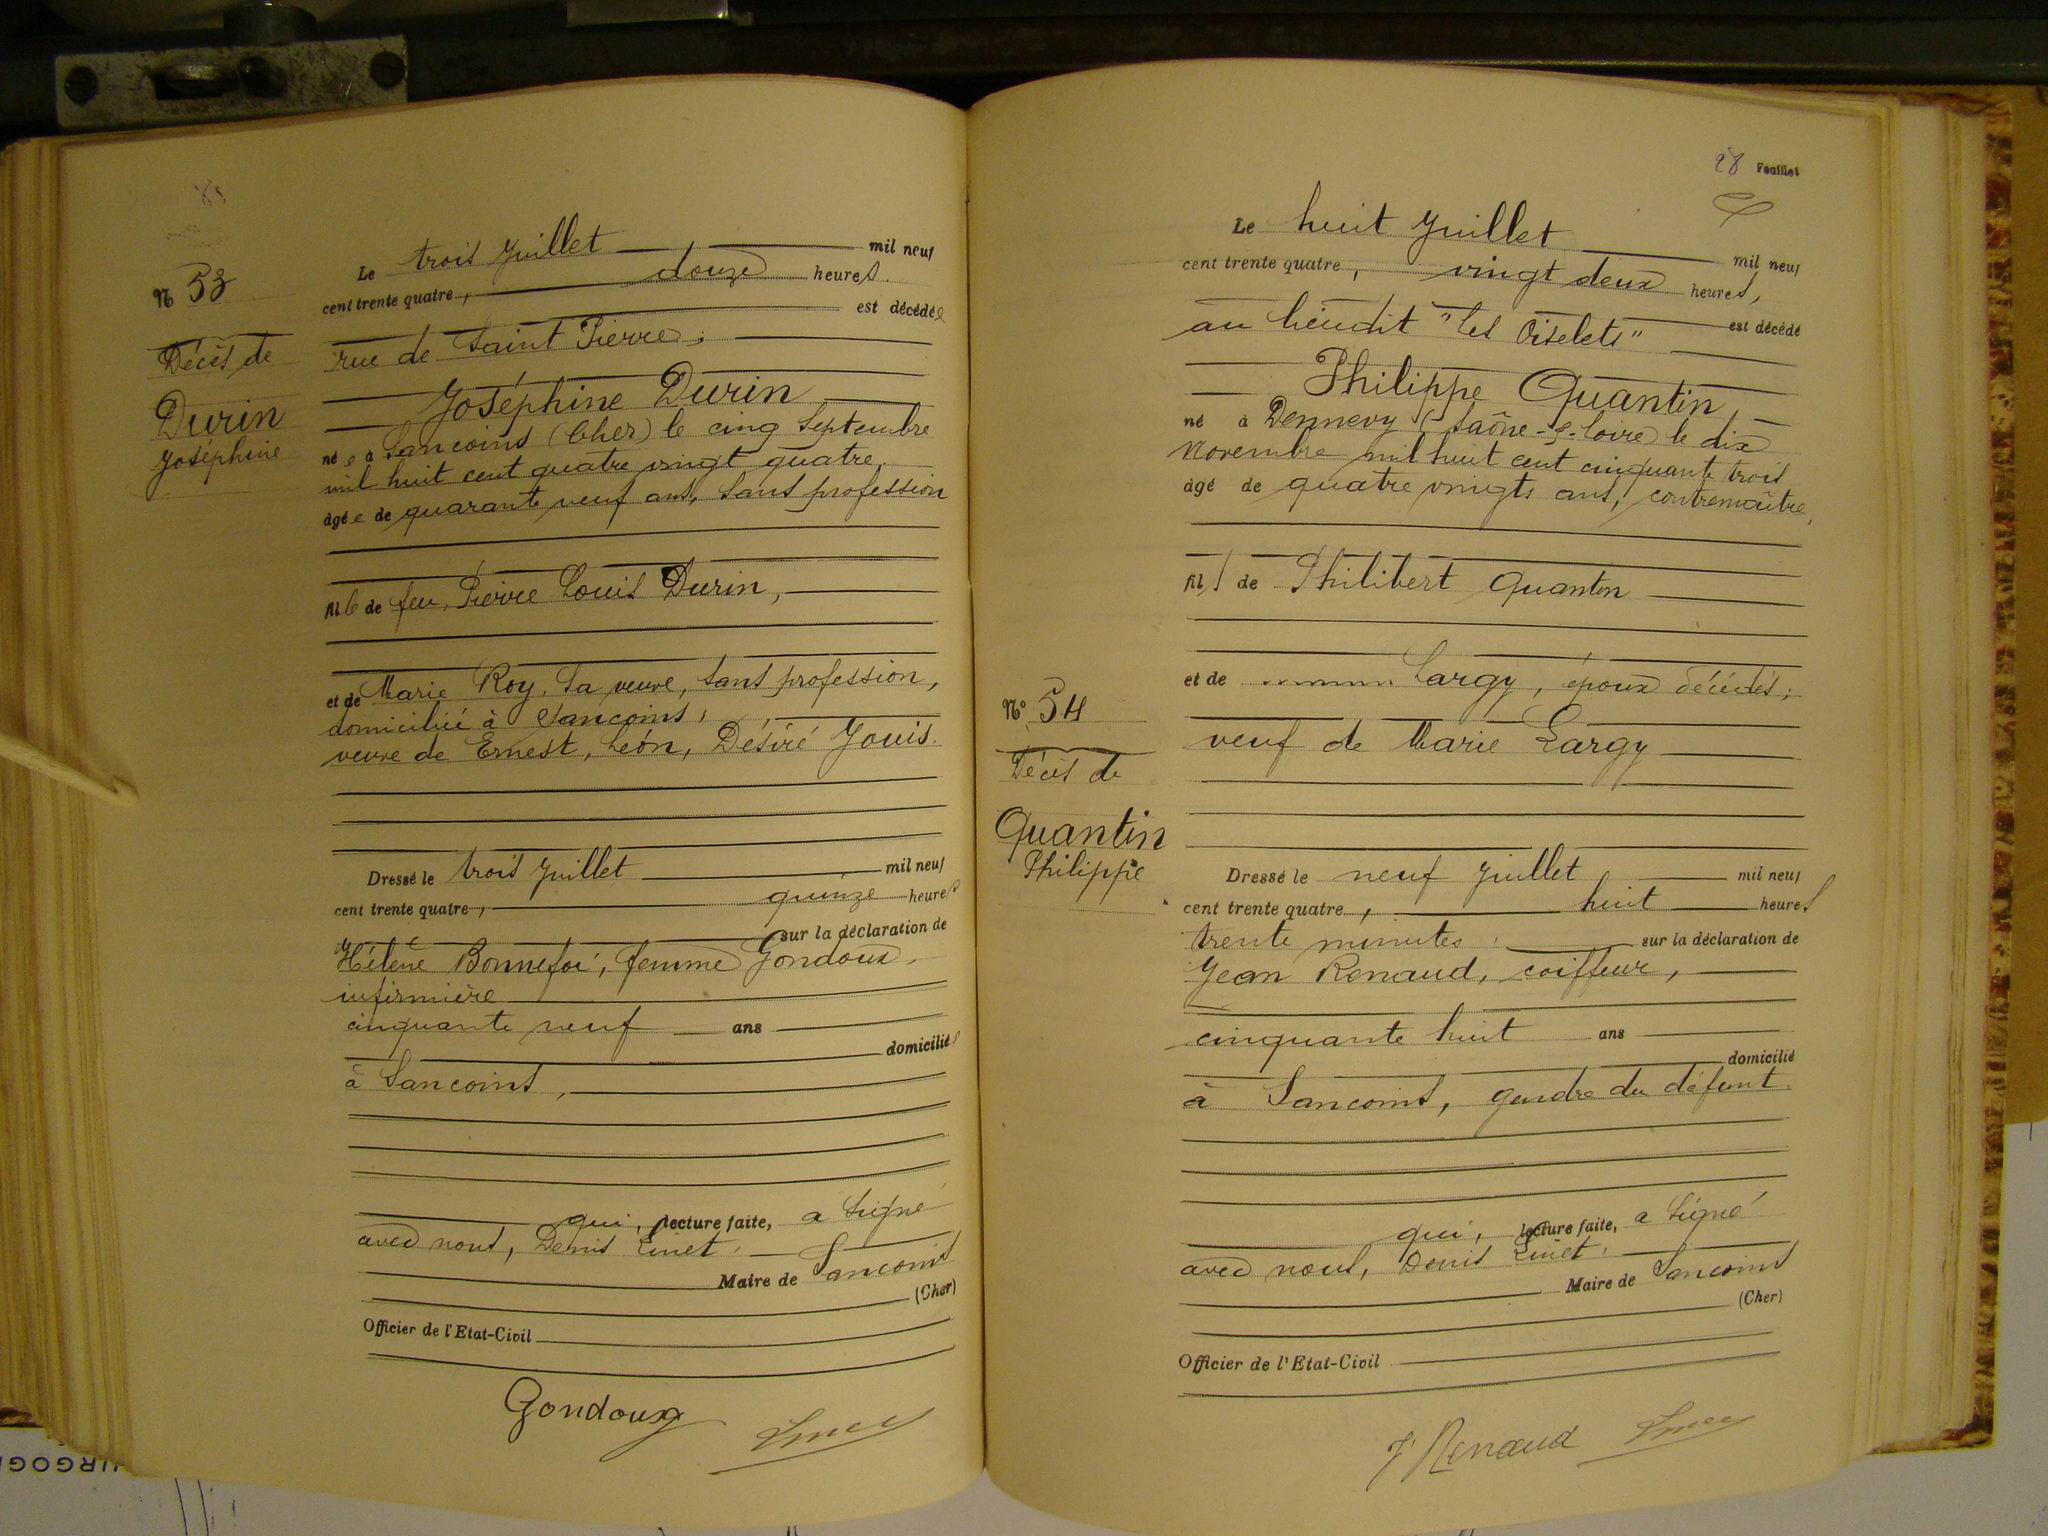 N 53
Décès de
Durin
Joséphine
Le trois Juillet mil neuf
cent trente quatre, douze heures.
est décédée
rue de Saint Pierre,
Joséphine Durin
née à Sancoins (Cher) le cinq Septembre
mil huit cent quatre vingt quatre,
âgée de quarante neuf ans, sans profession
fille de feu, Pierre Louis Durin,
et de Marie Roy, sa veuve, sans profession,
domiciliée à Sancoins,
veuve de Ernest, Léon, Désiré Jouis.
Dressé le trois Juillet mil neuf
cent trente quatre, quinze heures
sur la déclaration de
Hélène Bonnefoi, femme Gondoux,
infirmière
cinquante neuf ans
domiciliée
à Sancoins,
qui, lecture faite, a signé
avec nous, Denis Linet,
Maire de Sancoins
(Cher)
Officier de l'Etat-Civil
Gondoux
28 Feuillet
Le huit Juillet mil neuf
cent trente quatre, vingt deux heures,
au lieudit "Les Oiselets" est décédé
Philippe Quantin,
né à Dennevy (Saône-&-Loire) le dix
Novembre mil huit cent cinquante trois
âgé de quatre vingts ans, contremaître,
fils de Philibert Quantin
et de Largy, époux décédés;
veuf de Marie Largy
No 54
Décès de
Quantin
Philippe
Dressé le neuf Juillet mil neuf
cent trente quatre, huit heures
trente minutes, sur la déclaration de
Jean Renaud, coiffeur,
cinquante huit ans
domicilié
à Sancoins, gendre du défunt.
qui, lecture faite, a signé
avec nous, Denis Linet,
Maire de Sancoins
(Cher)
Officier de l'Etat-Civil
J Renaud